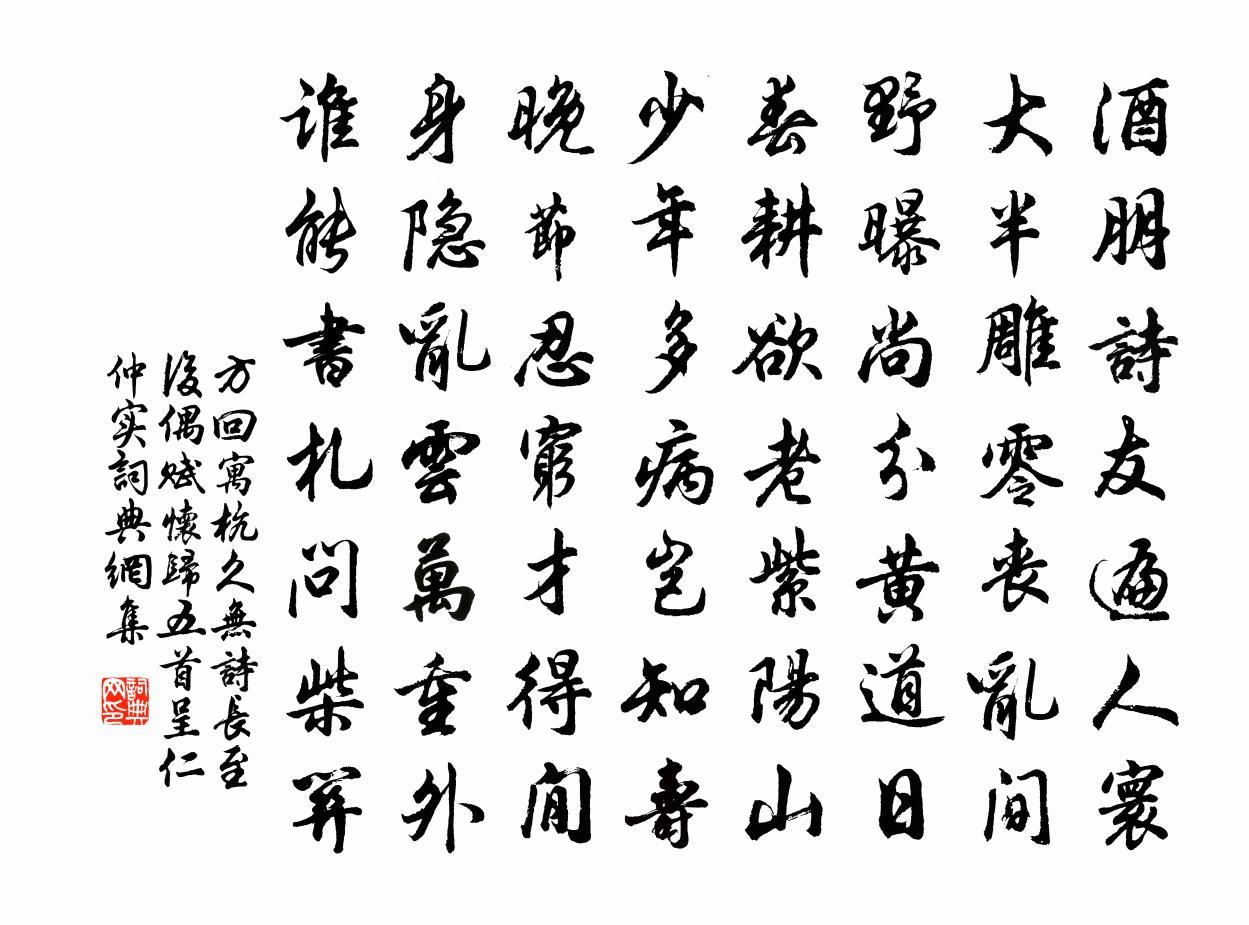 酒朋詩友遍人寰
大半雕零喪亂間
野曝尚分黃道日
春耕欲老紫陽山
少年多病豈知壽
晚節忍窮才得閒
身隐亂雲萬重外
谁能書札問柴關
方回寓杭久無詩長至
後偶赋懷歸五首呈仁
仲实詞典網集
詞典网印